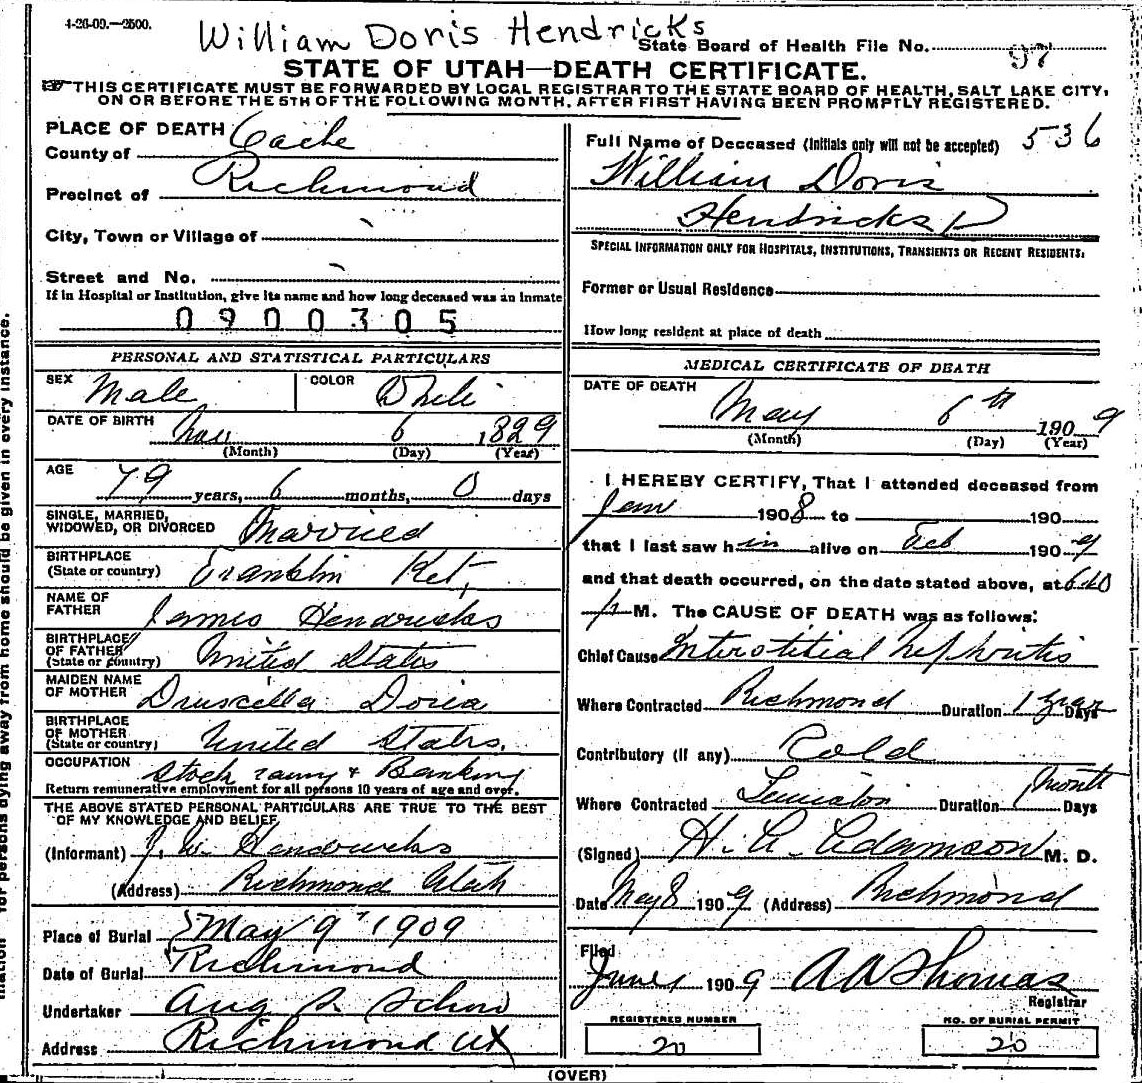 4-26-09.—2500.
William Doris Hendricks
State Board of Health File No. 97
STATE OF UTAH—DEATH CERTIFICATE.
THIS CERTIFICATE MUST BE FORWARDED BY LOCAL REGISTRAR TO THE STATE BOARD OF HEALTH, SALT LAKE CITY,
ON OR BEFORE THE 5TH OF THE FOLLOWING MONTH, AFTER FIRST HAVING BEEN PROMPTLY REGISTERED.
for persons dying away from home should be given in every instance.
PLACE OF DEATH
County of Cache
Precinct of Richmond
City, Town or Village of
Street and No.
If in Hospital or Institution, give its name and how long deceased was an inmate
0900305
PERSONAL AND STATISTICAL PARTICULARS
SEX Male COLOR White
DATE OF BIRTH Nov 6 1829
(Month) (Day) (Year)
AGE
79 years, 6 months, 0 days
SINGLE, MARRIED,
WIDOWED, OR DIVORCED Married
BIRTHPLACE
(State or country) Franklin Ket,
NAME OF
FATHER James Hendricks
BIRTHPLACE
OF FATHER
(State or country) United States
MAIDEN NAME
OF MOTHER Druscilla Doris
BIRTHPLACE
OF MOTHER
(State or country) United States.
OCCUPATION Stock & Banking
Return remunerative employment for all persons 10 years of age and over.
THE ABOVE STATED PERSONAL PARTICULARS ARE TRUE TO THE BEST
OF MY KNOWLEDGE AND BELIEF.
(Informant) J. W. Hendricks
(Address) Richmond Utah
Place of Burial May 9 1909
Date of Burial Richmond
Undertaker Aug S. Schow
Address Richmond UT
Full Name of Deceased (Initials only will not be accepted) 536
William Doris
Hendricks
SPECIAL INFORMATION ONLY FOR HOSPITALS, INSTITUTIONS, TRANSIENTS OR RECENT RESIDENTS:
Former or Usual Residence
How long resident at place of death
MEDICAL CERTIFICATE OF DEATH
DATE OF DEATH
May 6th 1909
(Month) (Day) (Year)
I HEREBY CERTIFY, That I attended deceased from
Jan 1908 to 190
that I last saw him alive on Feb 1909
and that death occurred, on the date stated above, at
M. The CAUSE OF DEATH was as follows:
Chief Cause Interstitial Nephritis
Where Contracted Richmond Duration 1 year Days
Contributory (if any) Cold
Where Contracted Lewiston Duration 1 month Days
(Signed) H. A. Adamson M. D.
Date May 8 1909 (Address) Richmond
Filed
June 1909 A A Thomas
Registrar
REGISTERED NUMBER
20
NO. OF BURIAL PERMIT
20
(OVER)